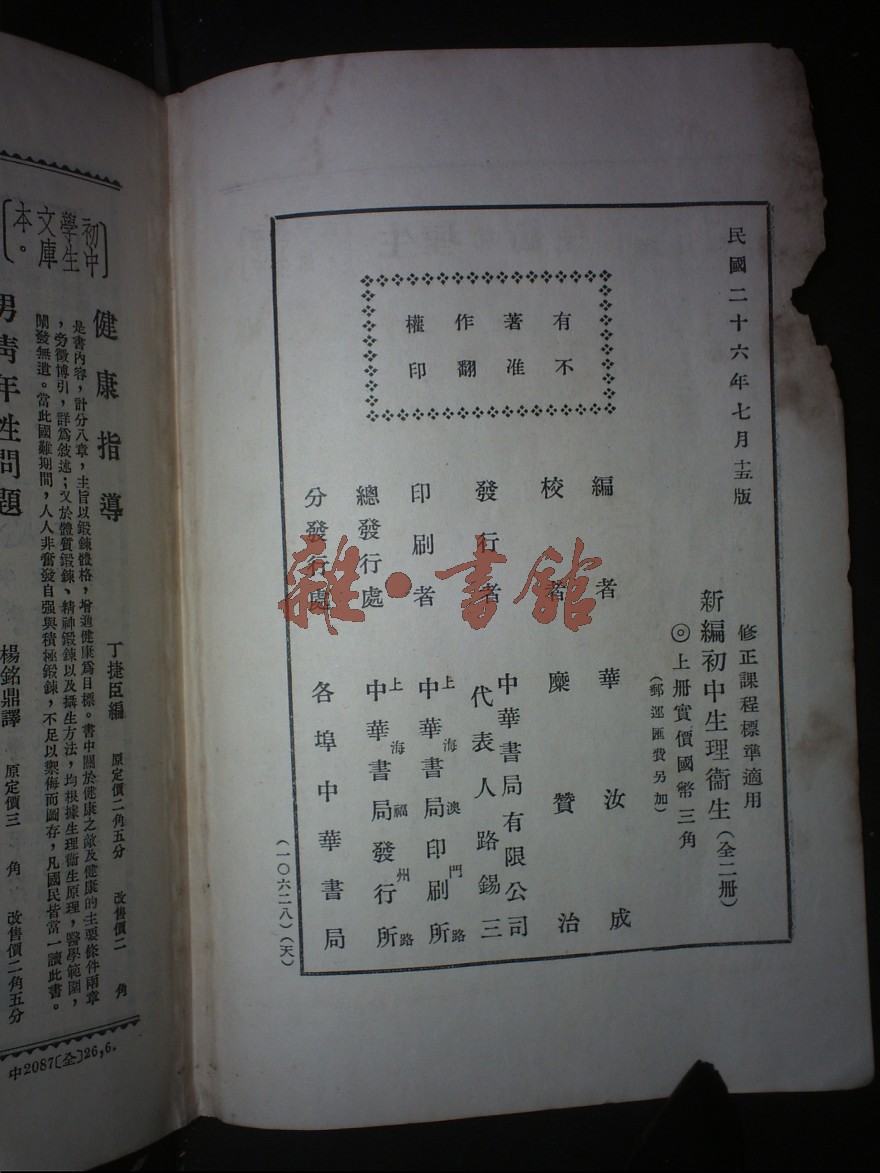 民國二十六年七月十五版
修正課程標準適用
新編初中生理衞生(全二册)
◎上册實價國幣三角
(郵運匯費另加)
有不
著准
作翻
權印
編者 華汝成
校者 糜贊治
發行者 中華書局有限公司
代表人路錫三
印刷者 上海澳門路
中華書局印刷所
總發行處 上海福州路
中華書局發行所
分發行處 各埠中華書局
(一〇六二八)(天)
雜·書館
初中
學生
文庫
本。
健康指導 丁捷臣編 原定價二角五分 改售價二角
是書內容,計分八章,主旨以鍛鍊體格,增適健康爲目標。書中關於健康之敵及健康的主要條件兩章
,旁徵博引,詳爲敍述;又於體質鍛鍊、精神鍛鍊以及攝生方法,均根據生理衞生原理,醫學範圍,
闡發無遺。當此國難期間,人人非奮發自强與積極鍛鍊,不足以禦侮而圖存,凡國民皆當一讀此書。
男青年性問題 楊銘鼎譯 原定價三角 改售價二角五分
中2087〔全〕26,6.